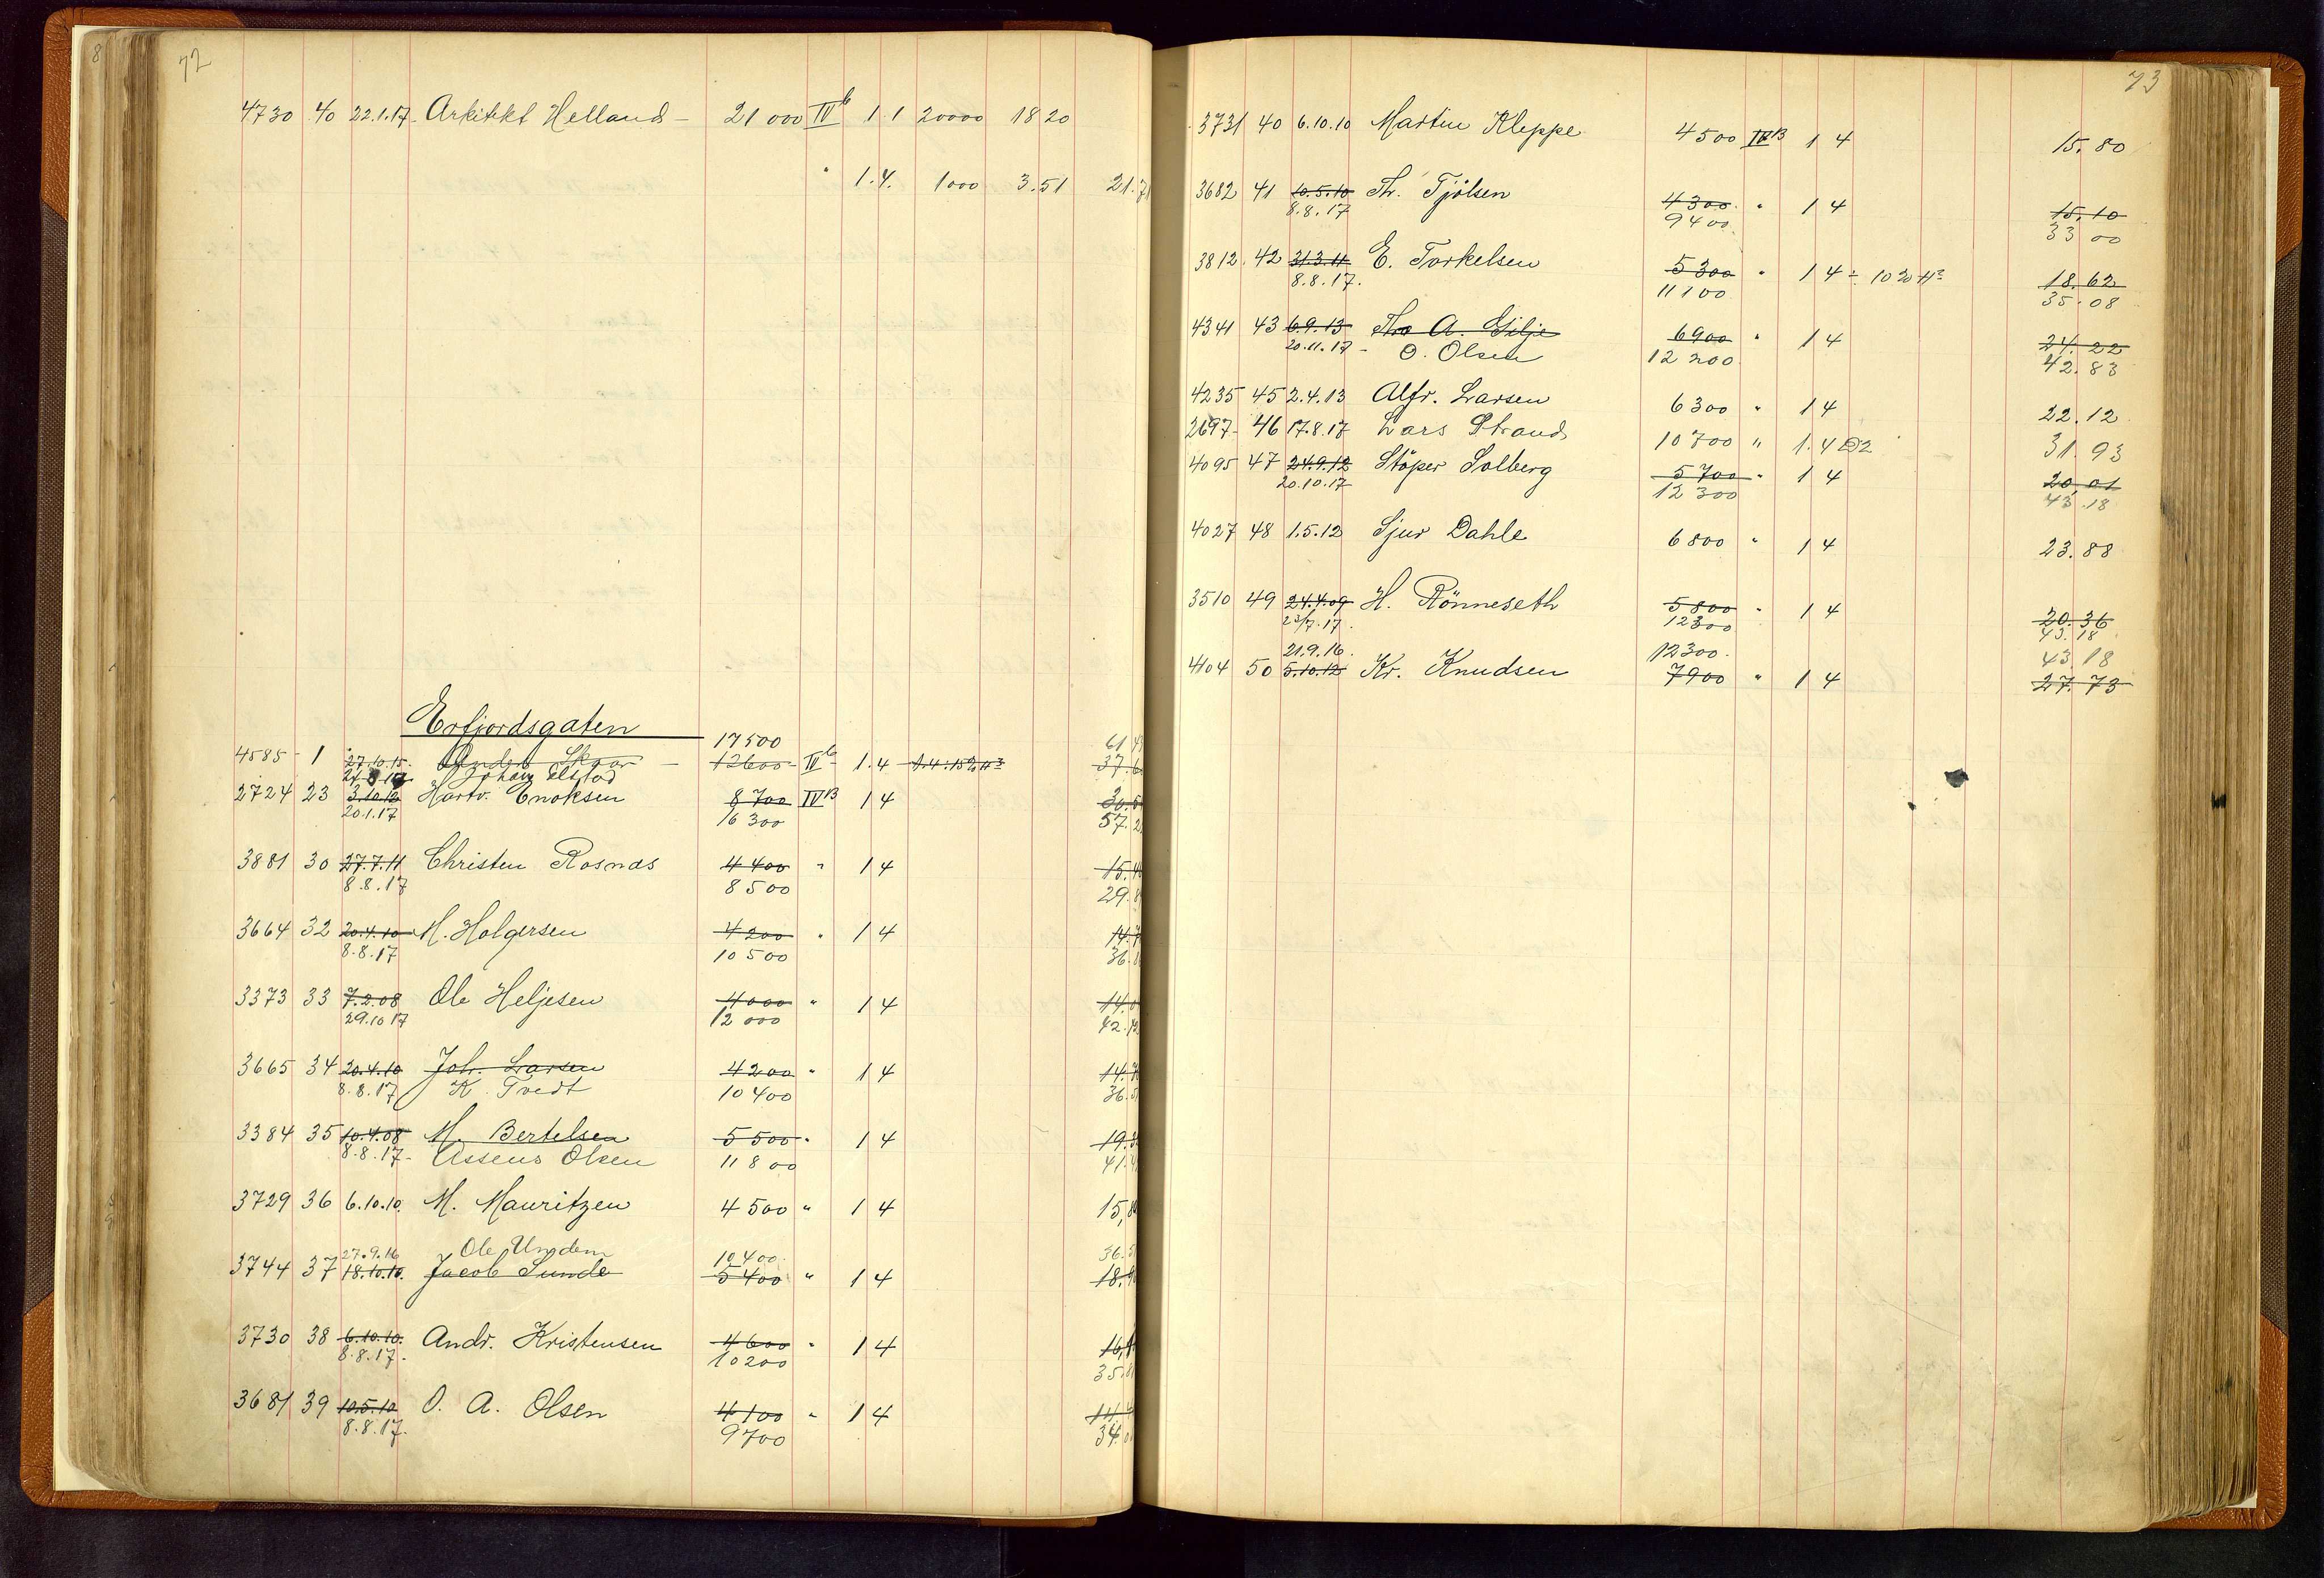 72
4730 40 22.1.17 Arkitekt Helland - 21 000 IVb 1.1 20000 18 20
" 1.4. 1000 3.51 21.71
Erfjordsgaten
17500 61
4585 - 1 27.10.15. Anders Skaar - 12600 - IVb 1.4 37.
Johan Elstad
2724 23 3.10.12 Hartv. Enoksen 8 700 IVB 1 4 30.5
20.1.17 16 300 57.2
3881 30 27.7.11 Christen Rosnæs 4 400 " 1 4 15.4
8.8.17 8 500 29.8
3664 32 20.4.10 M. Holgersen 4 200 " 1 4 14.7
8.8.17 10 500 36.
3373 33 7.2.08 Ole Heljesen 4000 " 1 4 14.0
29.10 17 12 000 42.12
3665 34 20.4.10 Joh. Larsen 4200 " 1 4 14.7
8.8.17 K. Tvedt 10 400 36.5
3384 35 10.4.08 M. Bertelsen 5 500 " 1 4 19.3
8.8.17 - Assens Olsen 11 8 00 41.4
3729 36 6.10.10. M. Mauritzen 4 500 " 1 4 15,8
27.9.16 Ole Ungdem 10 400 36.5
3744 37 18.10.10. Jacob Sunde 5 400 " 1 4 18.9
3730 38 6.10.10. Andr. Kristensen 4 600 " 1 4 16,1
8.8.17. 10200 35.8
3681 39 10.5.10 O. A. Olsen 4 100 " 1 4 14.4
8.8.17. 9700 34.0
73
3731 40 6.10.10 Martin Kleppe 4 500 IVB 1 4 15.80
3682 41 10.5.10 Th. Tjölsen 4 300 " 1 4 15.10
8.8.17 9400 33 00
3812 42 31.3.11 E. Torkelsen 5 300 " 1 4 ÷ 10% H3 18.62
8.8.17. 11 100 35.08
4341 43 6.9.13 Tho A. Gilje 6900 " 1 4 24.22
20.11.17 - O. Olsen 12 200 42.83
4235 45 2.4.13 Alfr. Larsen 6 300 " 1 4 22.12
2697 - 46 17.8.17 Lars Strand 10 700 " 1.4 31.93
4095 47 24.9.12 Stöper Solberg 5 700 " 1 4 20,01
20.10.17 12 300 43.18
4027 48 1.5.12 Sjur Dahle 6 800 " 1 4 23.88
3510 49 24.4.09 H. Rönneseth 5 800 " 1 4 20.36
23/7.17. 12300 43.18
21.9.16. 12300. 43.18
4104 50 5.10.12 Kr. Knudsen 7900 " 1 4 27.73